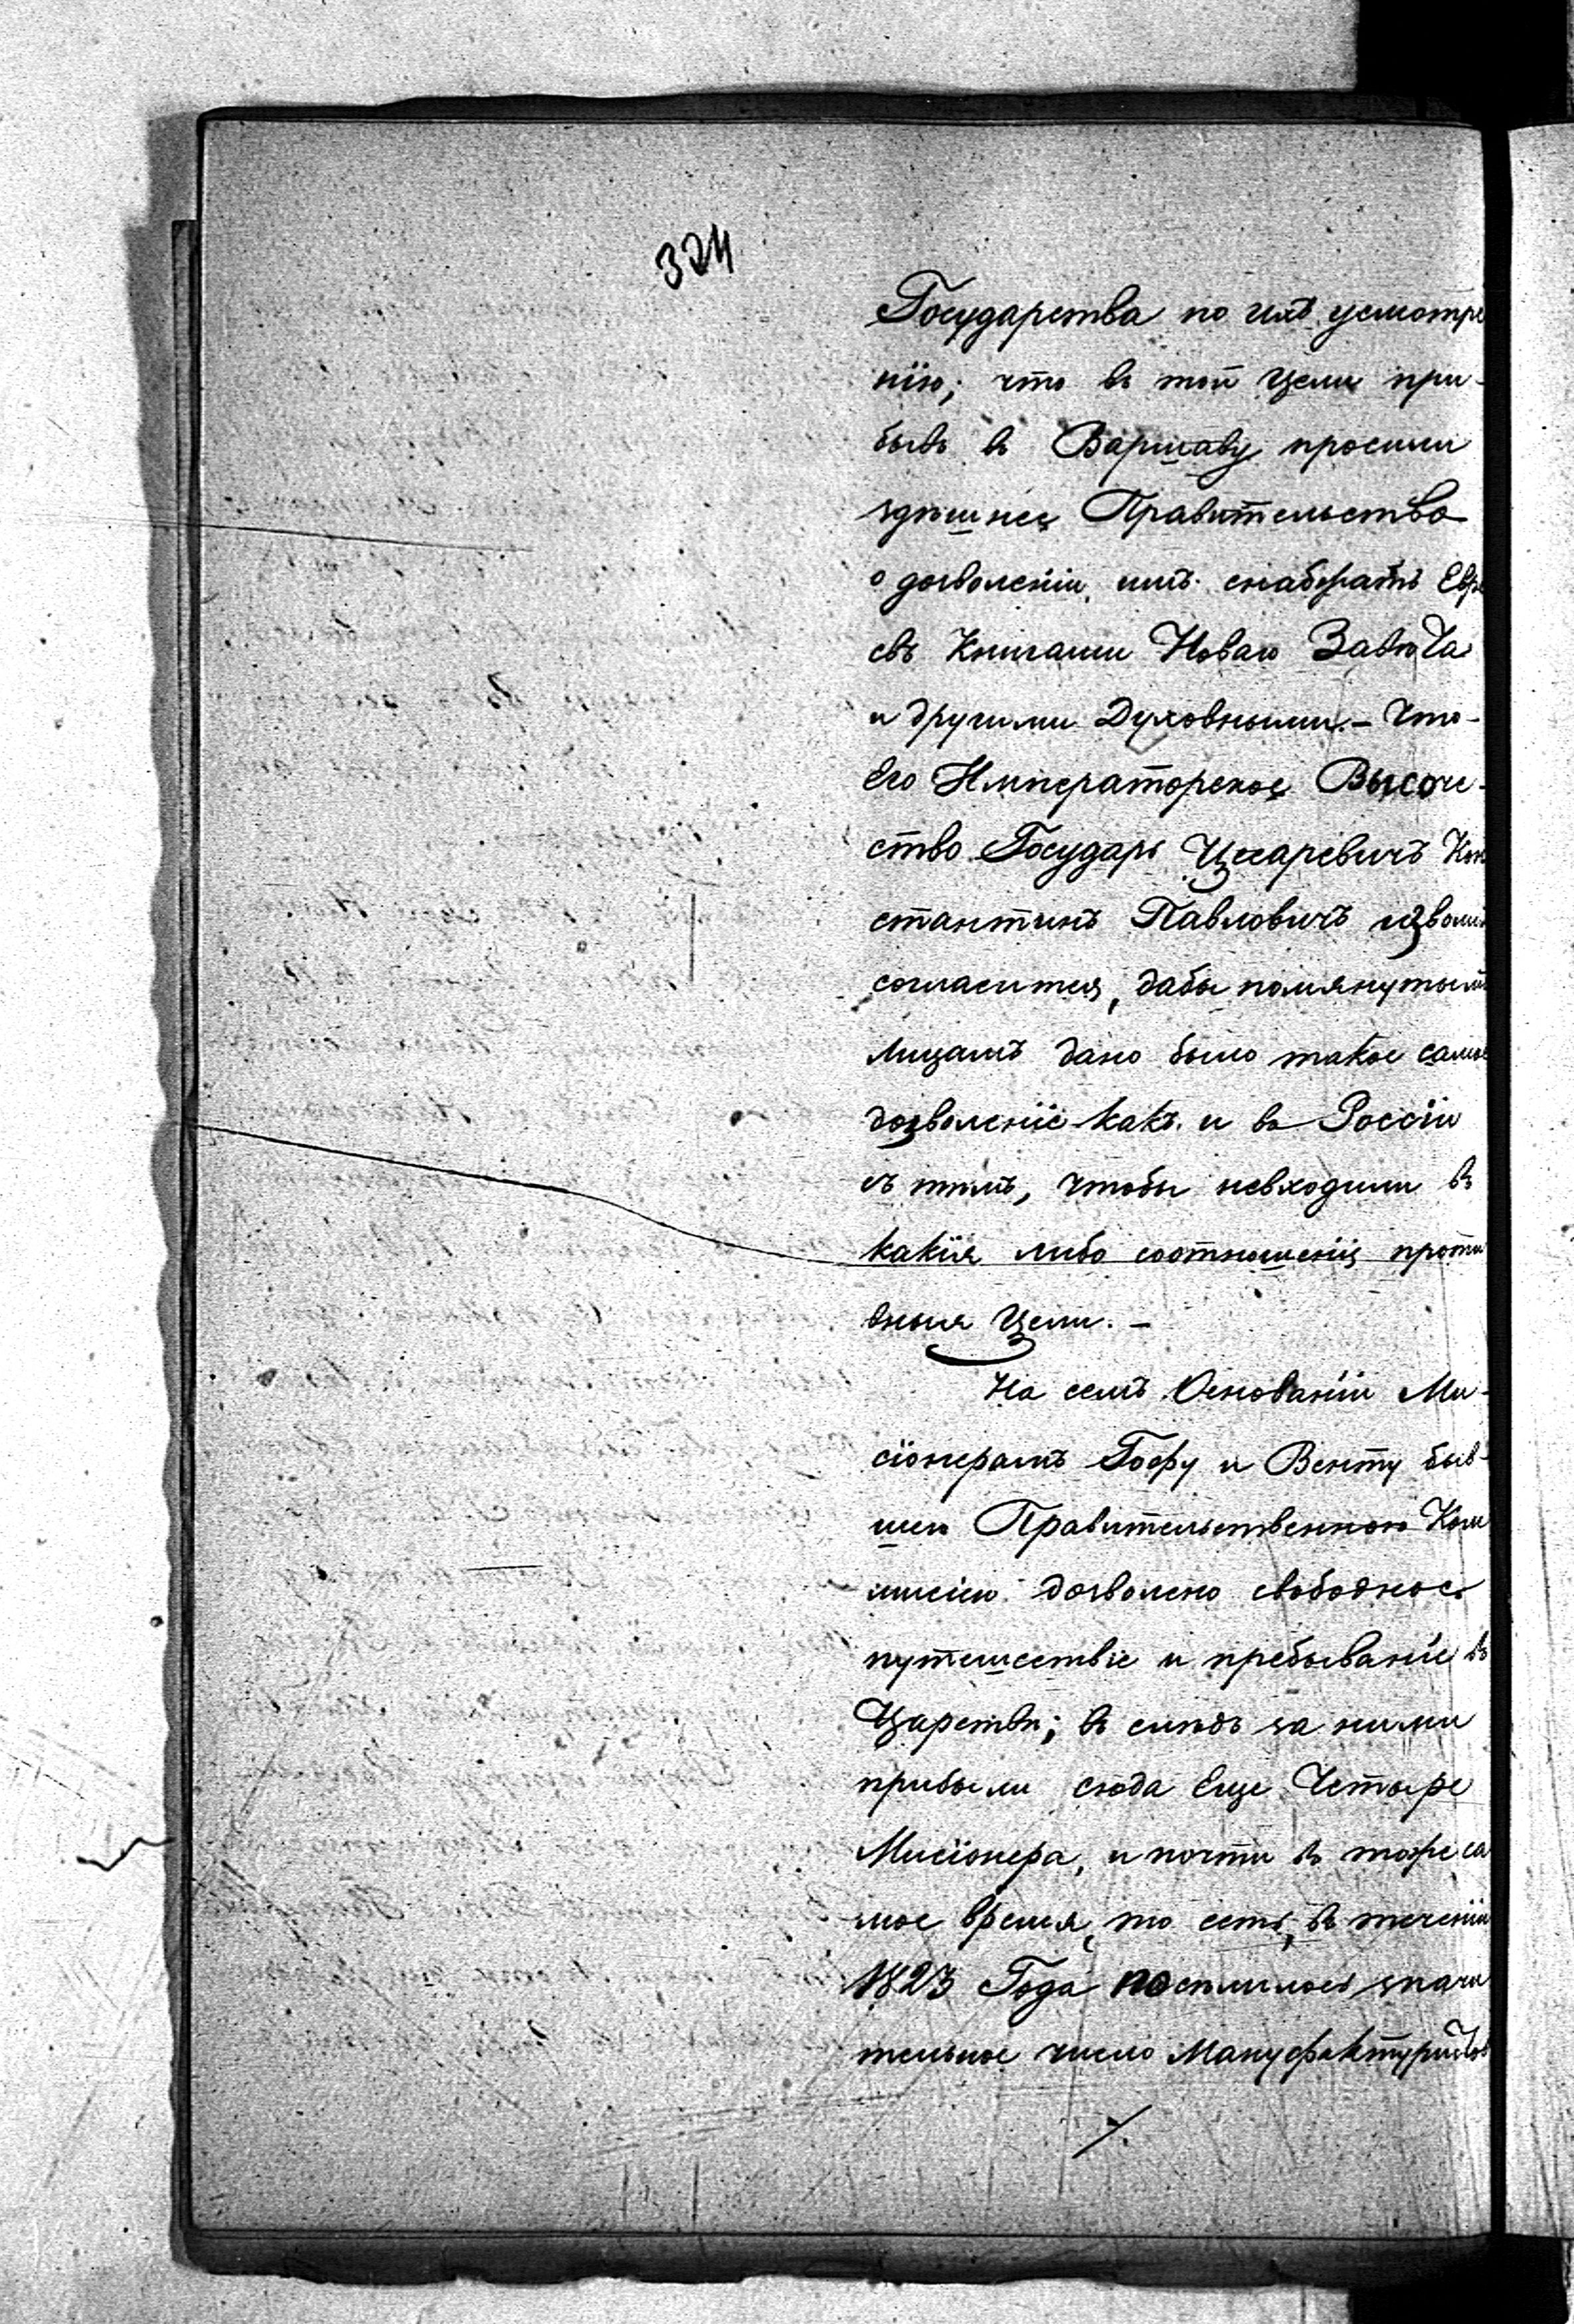 324
Государства по ихъ усмотре
нiю; что въ той Цели при-
бывъ въ Варшаву просили
здѣшнее Правительство
о дозволенiи имъ снабжать Евре
евъ Книгами Новаго Завѣта
и другими Духовными. – Что-
Его Императорское Высоче-
ство Государь Цесаревичъ Кон
стантинъ Павловичъ изволилъ
согласится, дабы помянутымъ
Лицамъ дано было такое самое
дозволенiе какъ и въ Россiи
съ тѣмъ, чтобы невходили въ
какiя либо соотношенiя проти
вныя Цели. –
На семъ Основанiи Ми-
сiонерамъ Гофу и Венту быв-
шею Правительственною Ком
мисiею дозволено свободное
путешествiе и пребыванiе въ
Царствѣ; въ слѣдъ за ними
прибыли сюда еще Четыре
Мисiонера, и почти въ тоже са
мое время, то есть, въ теченiи
1823 Года поселилось значи
тельное число Мануфактуристовъ